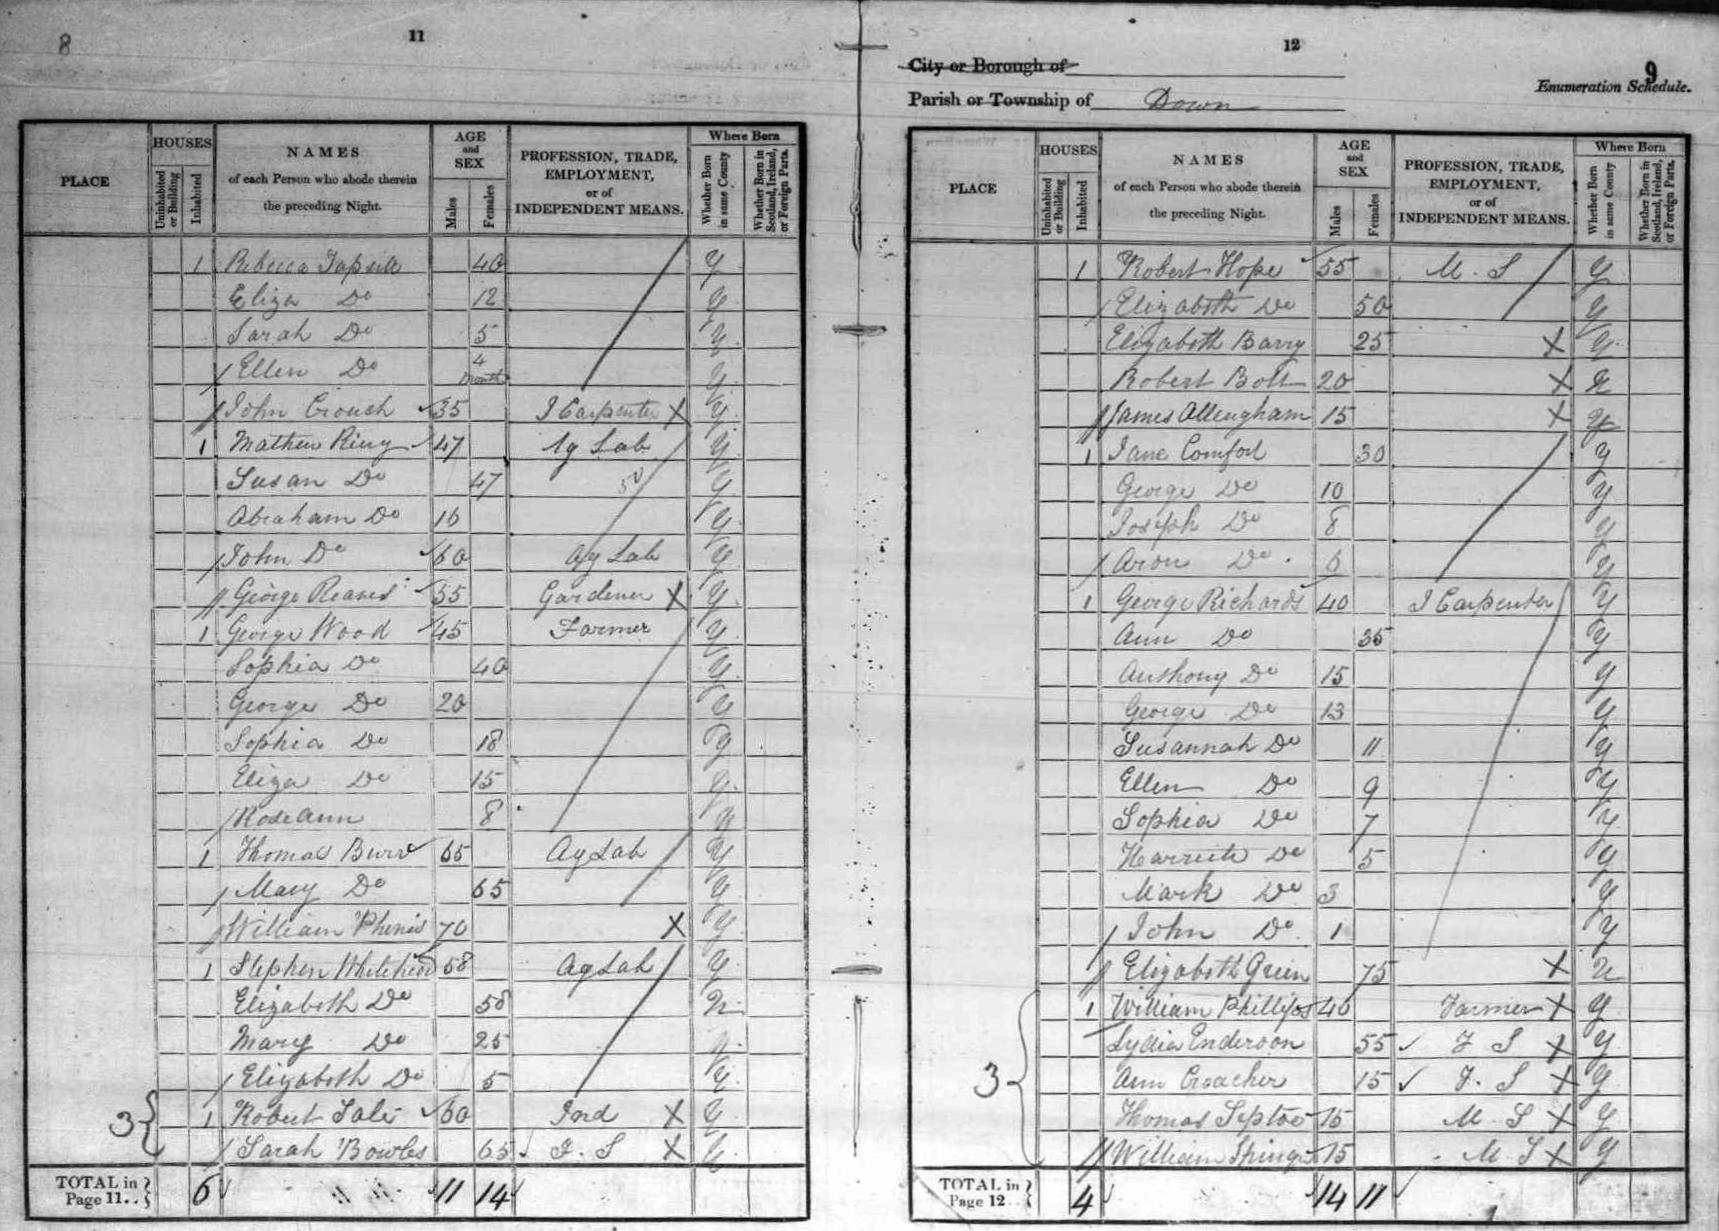 8
11
PLACE
HOUSES
Uninhabited or Building
Inhabited
NAMES
of each Person who abode therein
the preceding Night.
AGE
and
SEX
Males
Females
PROFESSION, TRADE,
EMPLOYMENT,
or of
INDEPENDENT MEANS.
Where Born
Whether Born in same County
Whether Born in Scotland, Ireland, or Foreign Parts.
1 Rebecca Tapsell 40 Y
Eliza Do 12 Y
Sarah Do 5 Y
Ellen Do 4 Month Y
John Crouch 35 J Carpenter X Y
1 Mathew Ring 47 Ag Lab Y
Susan Do 47 Y
Abraham Do 16 Y
John Do 60 Ag Lab Y
George Reaves 35 Gardener X Y
1 George Wood 45 Farmer Y
Sophia Do 40 Y
George Do 20 Y
Sophia Do 18 Y
Eliza Do 15 Y
Rose Ann 8 Y
1 Thomas Burr 65 Ag Lab Y
Mary Do 65 Y
William Phinis 70 X Y
1 Stephen Whitehead 58 Ag Lab Y
Elizabeth Do 58 N
Mary Do 25 Y
Elizabeth Do 5 Y
3 1 Robert Sale 60 Ind X Y
Sarah Bowles 65 F. S X Y
TOTAL in Page 11.. 6 11 14
12
City or Borough of
Parish or Township of Down
9
Enumeration Schedule.
PLACE
HOUSES
Uninhabited or Building
Inhabited
NAMES
of each Person who abode therein
the preceding Night.
AGE
and
SEX
Males
Females
PROFESSION, TRADE,
EMPLOYMENT,
or of
INDEPENDENT MEANS.
Where Born
Whether Born in same County
Whether Born in Scotland, Ireland, or Foreign Parts.
1 Robert Hope 55 M. S Y
Elizabeth Do 50 Y
Elizabeth Barry 25 X Y
Robert Bolt 20 X N
James Allengham 15 X Y
1 Jane Comfort 30 Y
George Do 10 Y
Joseph Do 8 Y
Aron Do 6 Y
1 George Richards 40 J Carpenter Y
Ann Do 35 Y
Anthony Do 15 Y
George Do 13 Y
Susannah Do 11 Y
Ellen Do 9 Y
Sophia Do 7 Y
Harriett Do 5 Y
Mark Do 3 Y
John Do 1 Y
Elizabeth Green 75 X N
3 1 William Phillips 40 Farmer X Y
Lydia Enderson 55 F S X Y
Ann Croacher 15 F. S X Y
Thomas 15 M. S X Y
William 15 M S X Y
TOTAL in Page 12.. 4 14 11